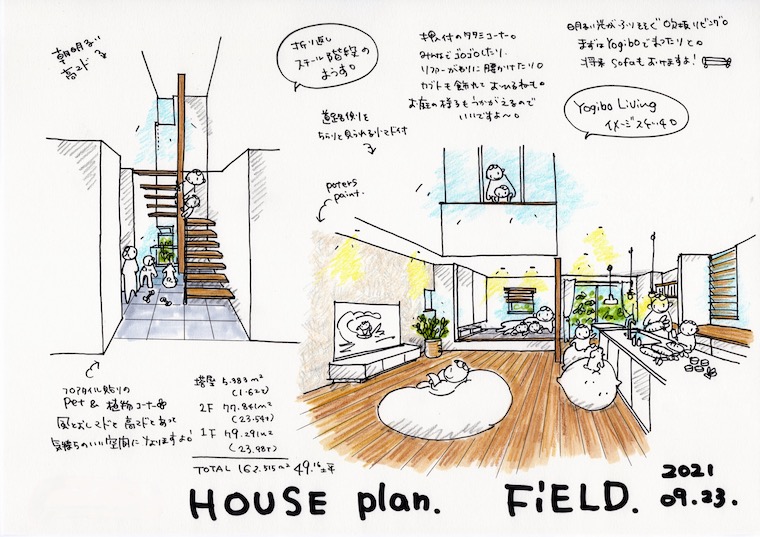 朝明るい
高マド
折り返し
スチール階段の
ようす。
道路側を
ちらりと見られる小マド付
押入付のタタミコーナー。
みんなでゴロゴロしたり、
ソファーがわりに腰かけたり。
カブトも飾れておひるねも。
お庭の様子もうかがえるので
いいですよ〜。
明るい光がふりそそぐ吹抜リビング。
まずはYogiboでまったりと。
将来Sofaもおけますよ!
Yogibo Living
イメージスケッチ。
poters
paint.
フロアタイル貼りの
Pet & 植物コーナー
風とおしマドと高マドとあって
気持ちのいい空間になりますよ!
塔屋 5.383㎡
(1.62T)
2F 77.841㎡
(23.54T)
1F 79.291㎡
(23.98T)
TOTAL 162.515㎡ 49.16坪
HOUSE plan. FiELD. 2021
09.23.